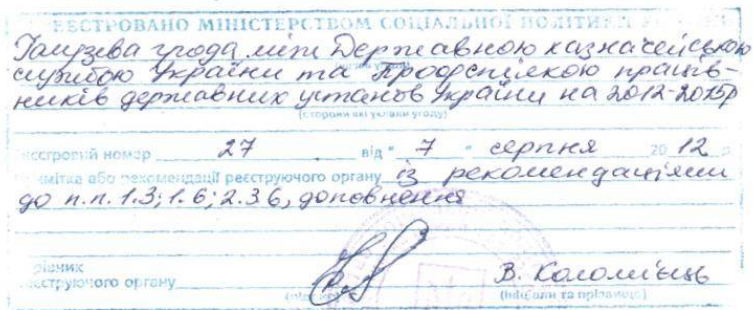 РЕЄСТРОВАНО МІНІСТЕРСТВОМ СОЦІАЛЬНОЇ ПОЛІТИКИ
Галузева угода між Державною казначейською
службою України та Профспілкою праців-
ників державних установ України на 2012-2015р
(сторони які уклали угоду)
еєстровий номер 27 від " 7 " серпня 2012 р
мітка або рекомендації реєструючого органу із рекомендаціями
до п.п. 1.3; 1.6; 2.3.6, доповнення
рівник
еєструючого органу В. Коломієць
(підпис) (ініціали та прізвище)